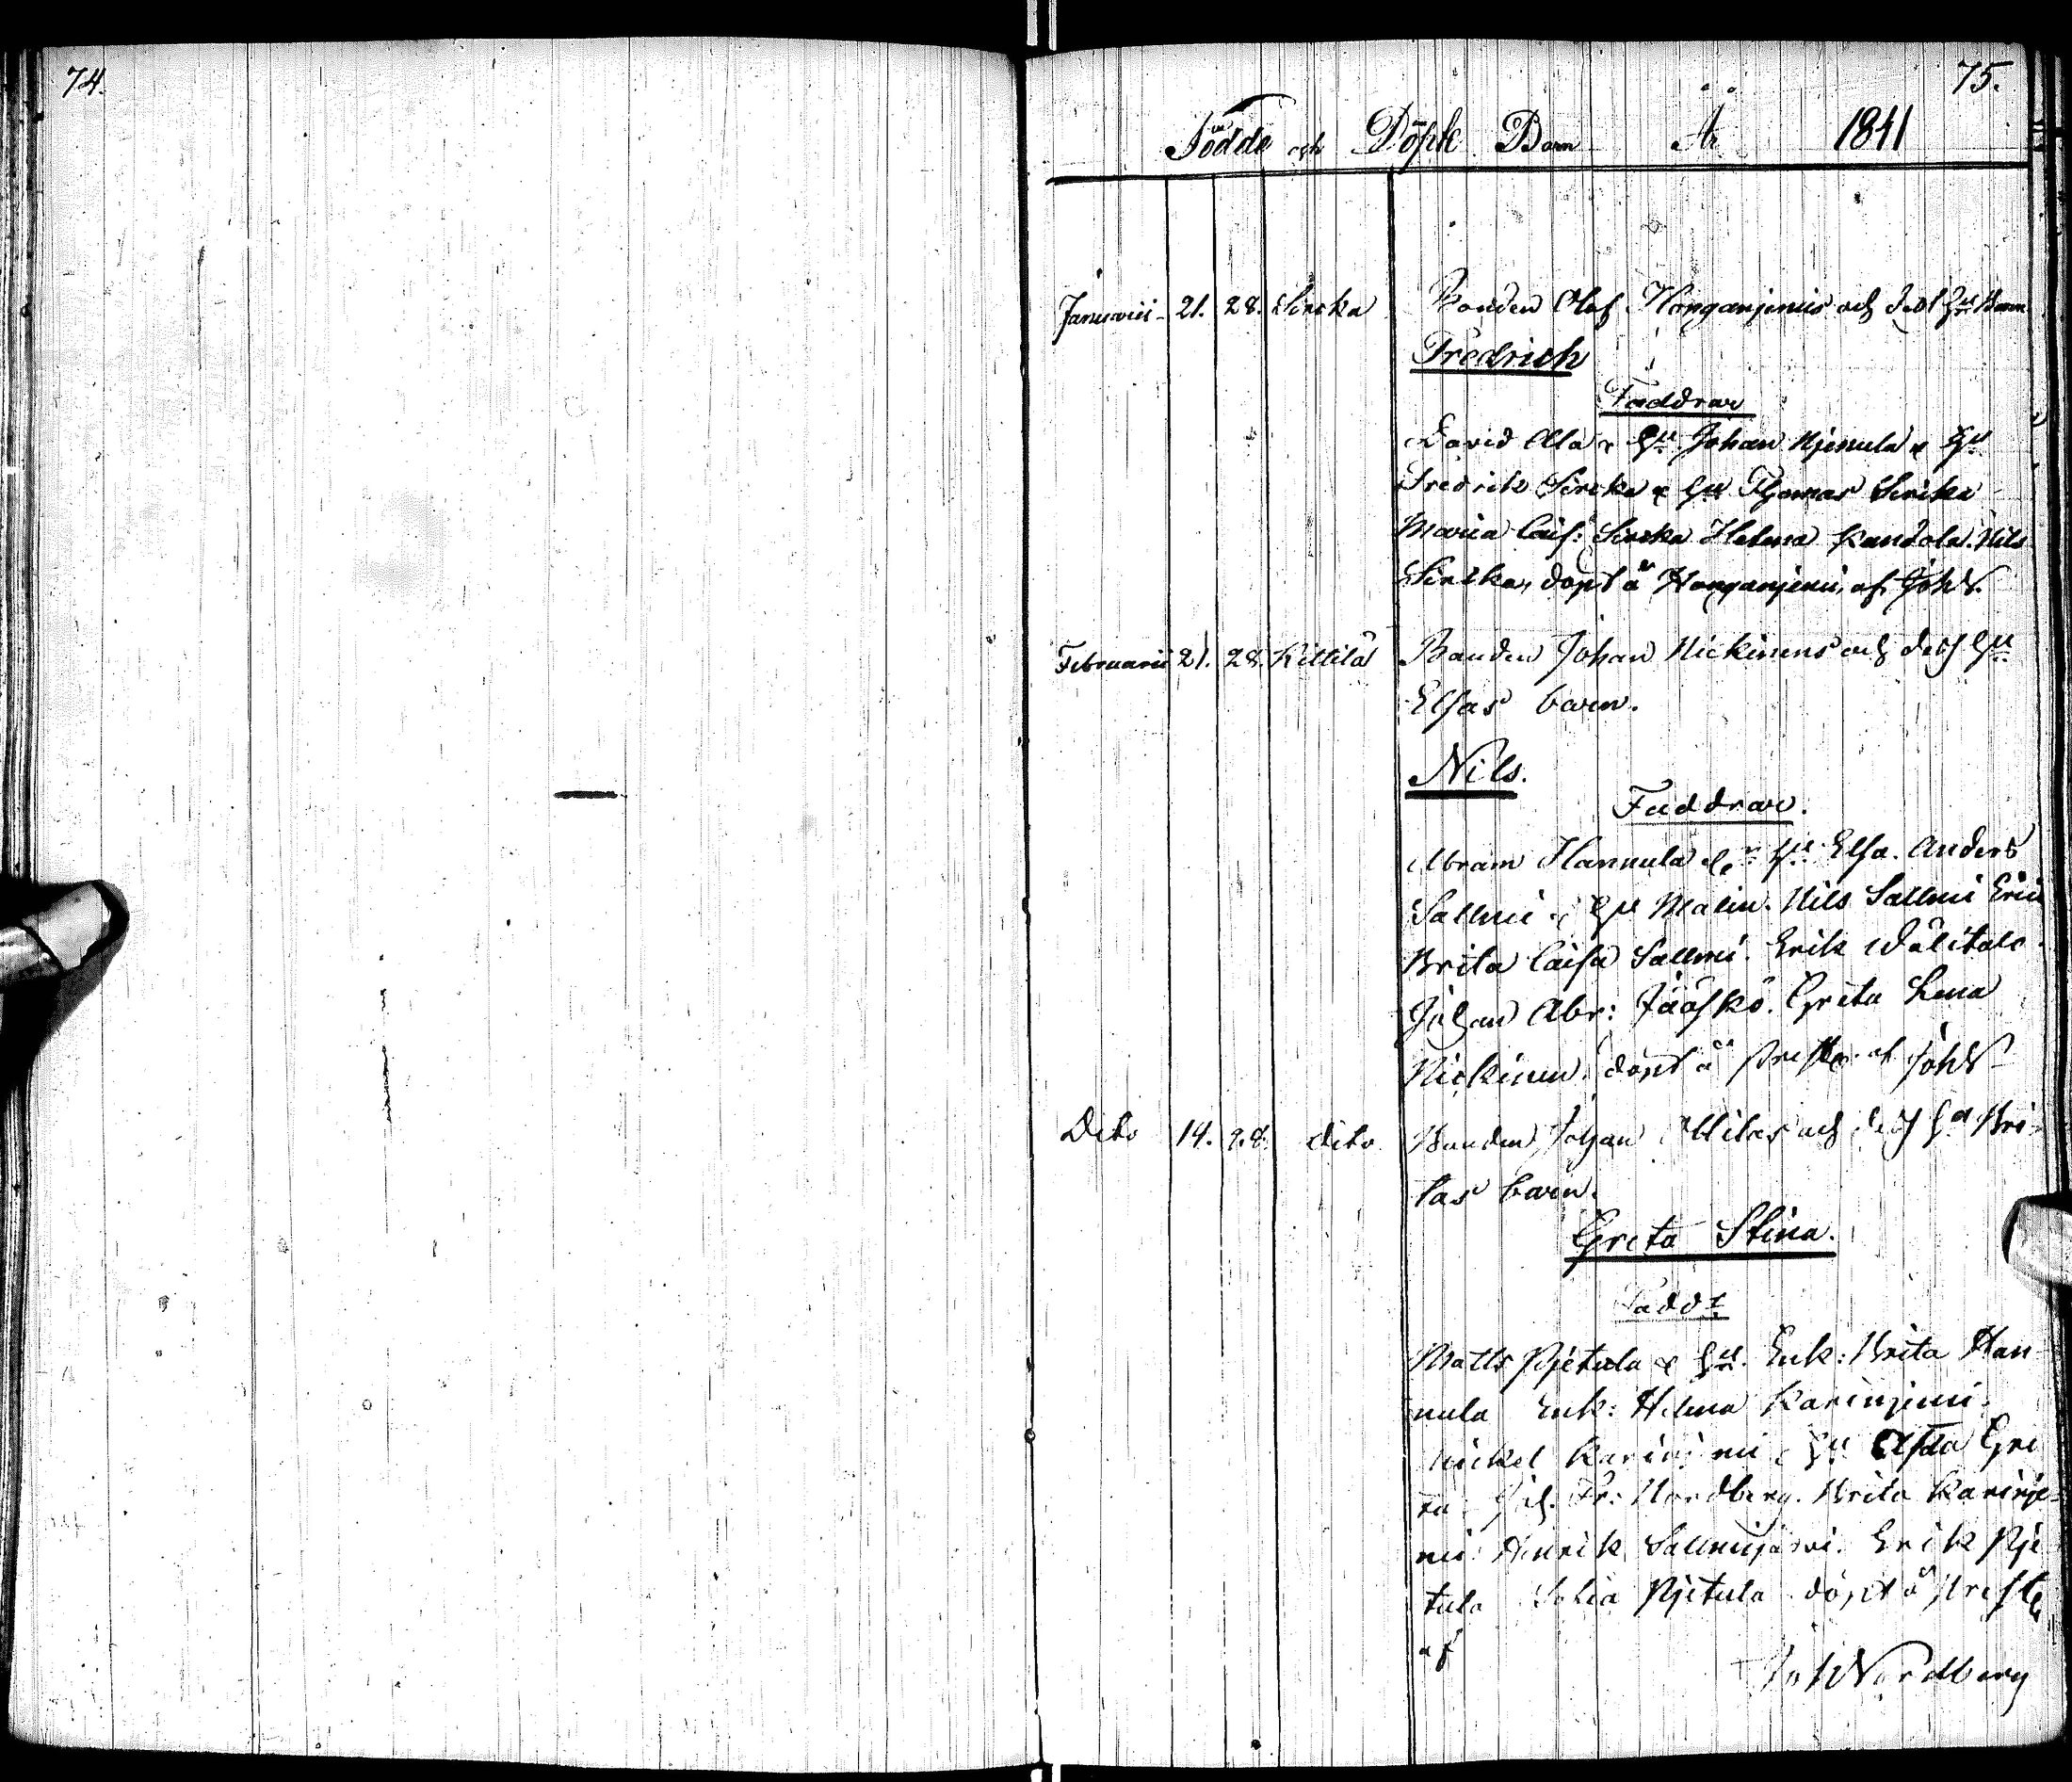 74.
75.
Födde och Döpte Barn År 1841
Januarii 21. 28. Sircka Bonden Olof Honganjemis och dess Hu Barn
Fredrich
Faddrar
David Ala & Hu Johan Njemula & Hu
Fredrik Sircka & Hu Thomas Sirika
Maria Caisa Sircka Helena Kandola. Nils
Sircka, döpt å Honganjemi, af JohN.
Februarii 21. 28. Kittilä Bonden Johan Nickinens och dess Hu
Elsas barn.
Nils.
Faddrar.
Abram Hannula & Hu Elsa. Anders
Sallmi & Hu Malin. Nils Sallmi Eric
Brita Caisa Sallmi. Erik Wälitalo.
Johan Abr: Jääskö. Greta Lena
Nickinen. döpt å prestg. af JohN
Dito 14. 28. dito Bonden Johan Ollilas och dess Hu Bri-
tas barn.
Greta Stina.
Faddr
Matts Pjetula & Hu. Enk: Brita Han
nula Enk: Helena Karinjemi.
Mickel Karinjemi & Hu Gre
ta. Joh. Fr: Nordberg. Brita Karinje-
mi Henrik Sallmijärvi. Erik Pje
tula Sofia Pjetula döpt å prestg
af
JohNordberg